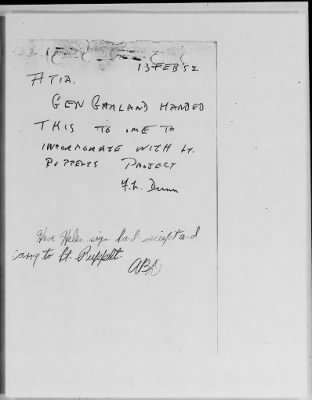 13 FEB 52
ATIA.
GEN GARLAND HANDED
THIS TO ME TO
INCORPORATE WITH LT.
RUPPELTS PROJECT
Have Helen sign for receipt and
carry to Lt. Ruppelt.